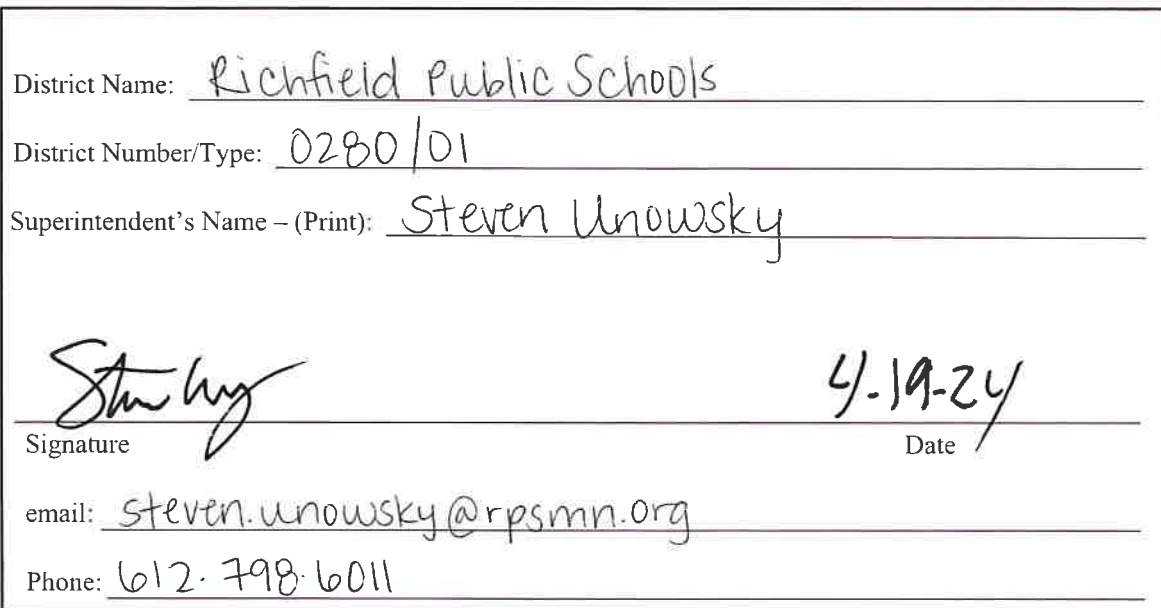 District Name: Richfield Public Schools
District Number/Type: 0280/01
Superintendent's Name – (Print): Steven Unowsky
4-19-24
Signature Date
email: steven.unowsky@rpsmn.org
Phone: 612.798.6011